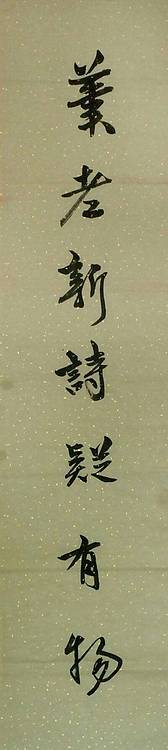 老新詩疑有物